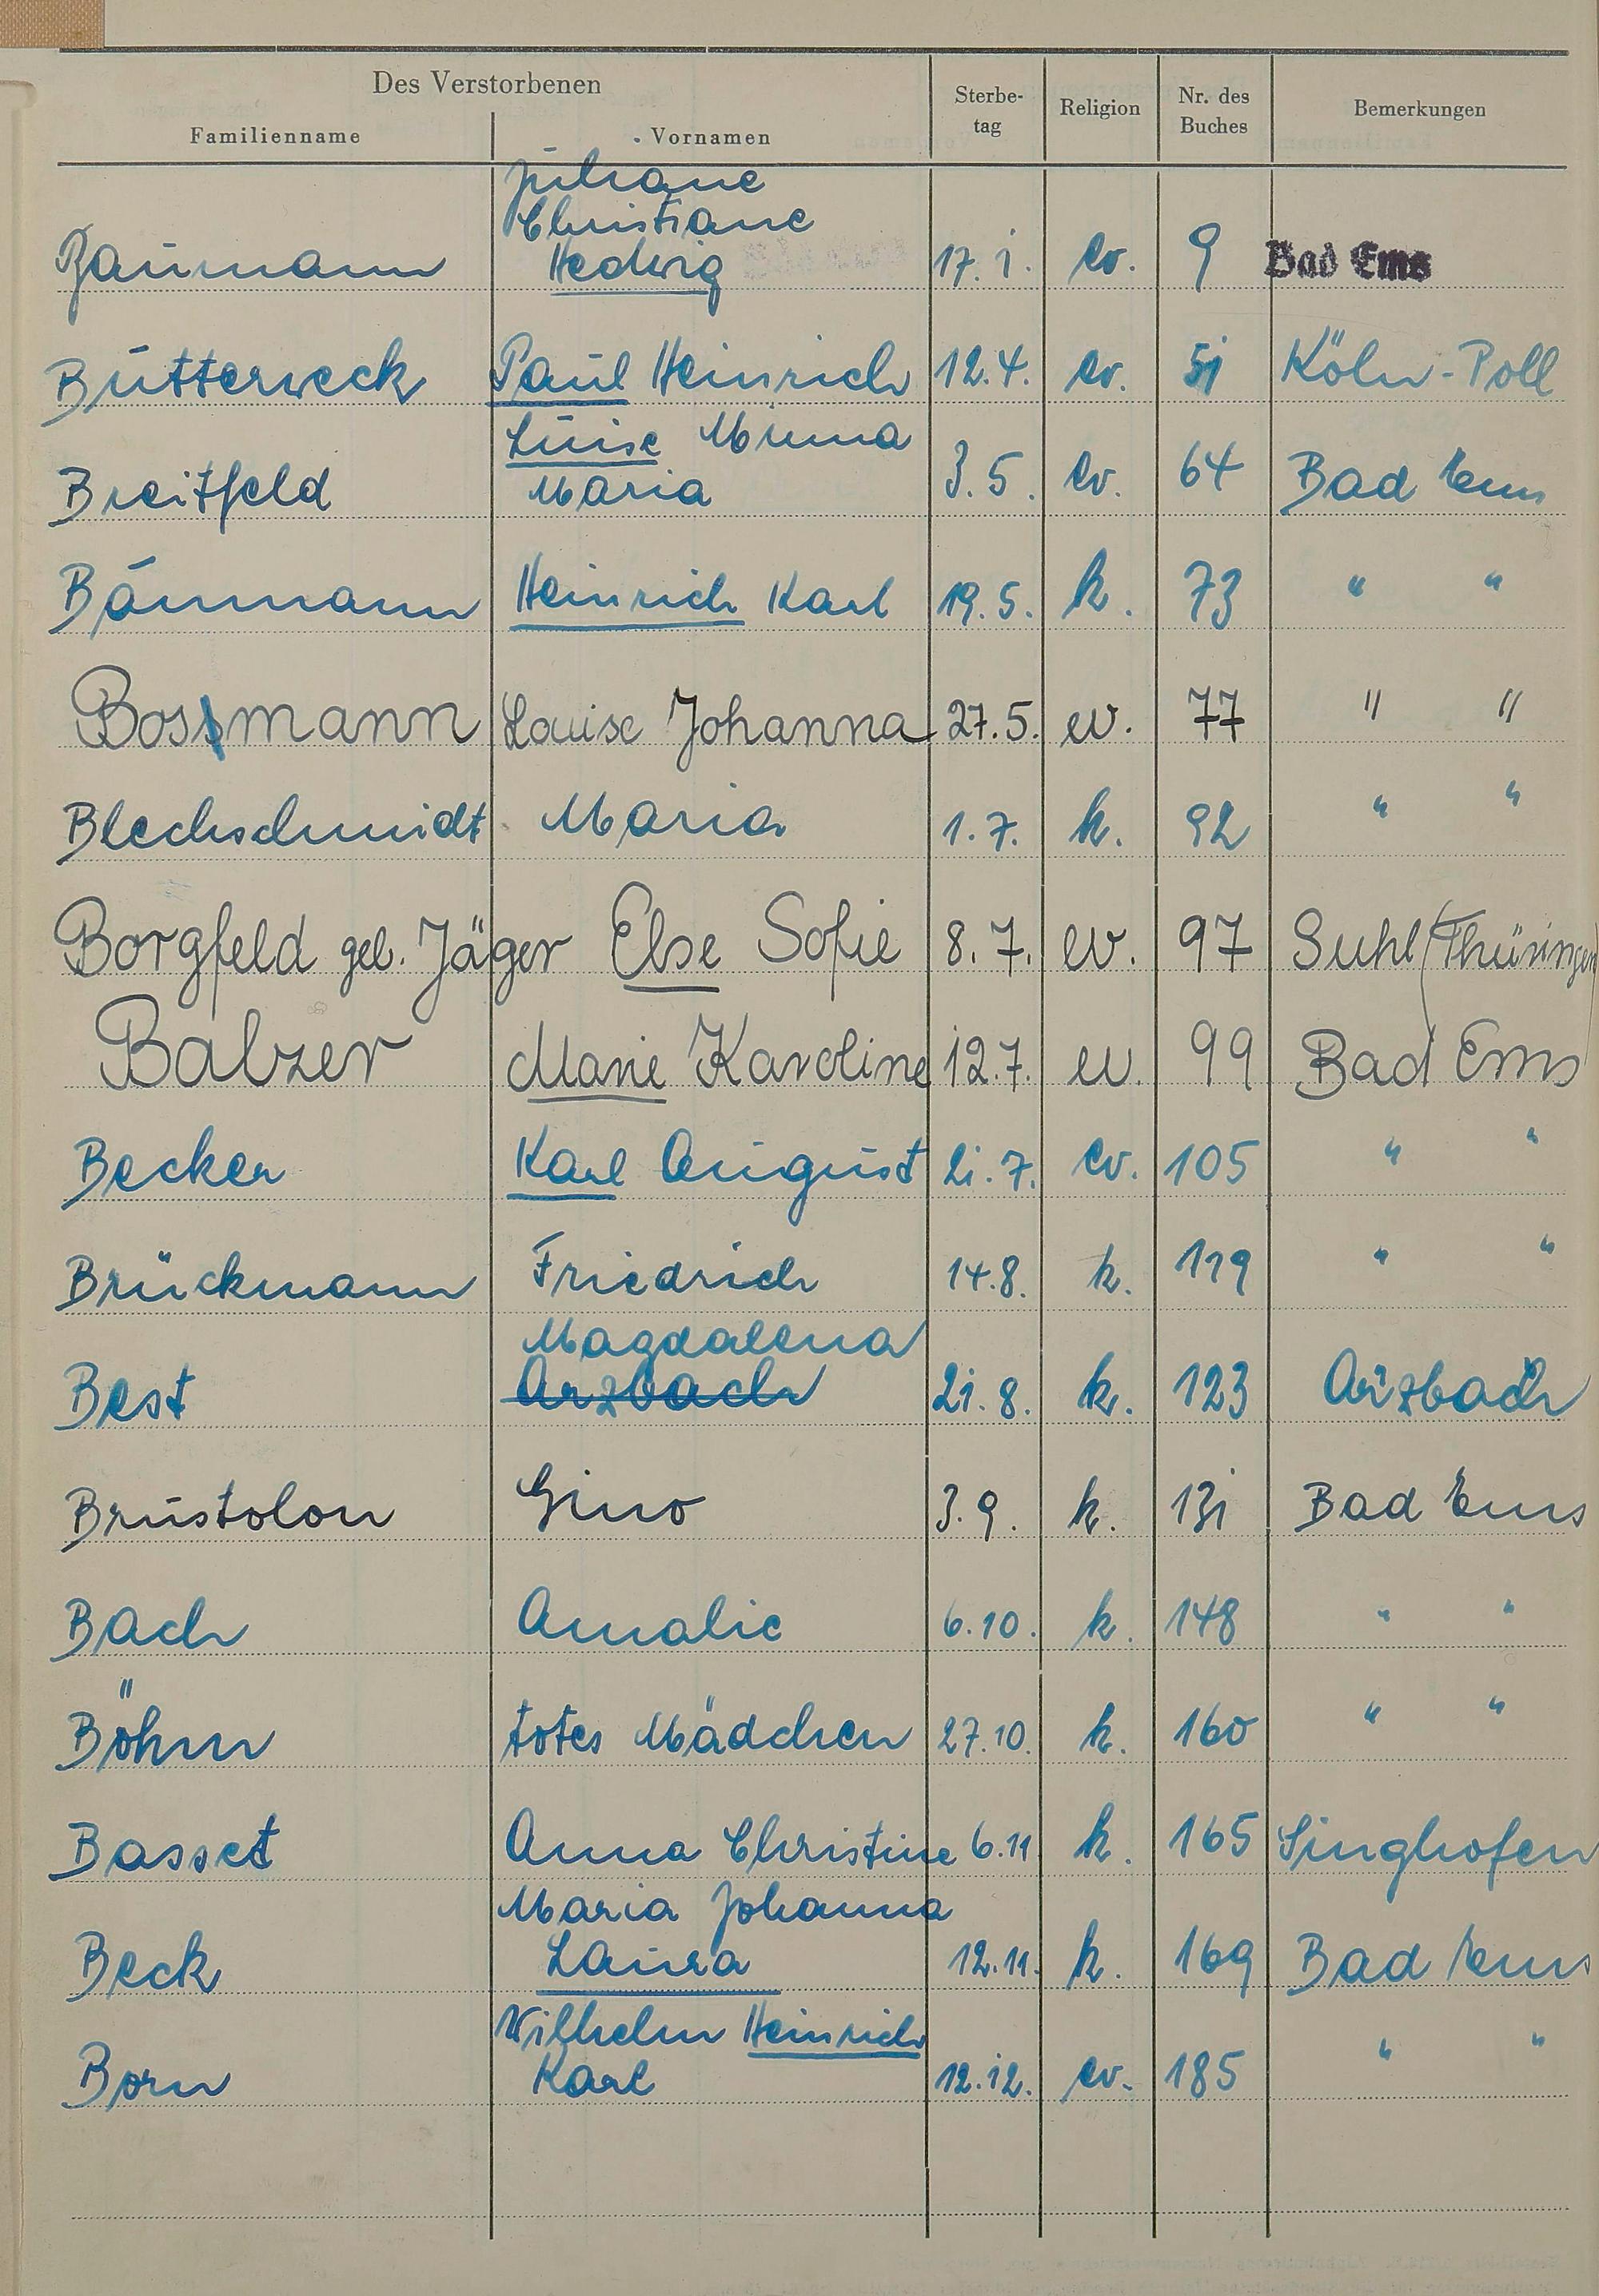 Des Verstorbenen
Familienname Vornamen Sterbe-tag Religion Nr. des Buches Bemerkungen
Juliane
Christiane
Baumann Hedwig 17.1. ev. 9 Bad Ems
Butterweck Paul Heinrich 12.4. ev. 51 Köln-Poll
Luise Minna
Breitfeld Maria 3.5. ev. 64 Bad Ems
Baumann Heinrich Karl 19.5. k. 73 " "
Bossmann Louise Johanna 27.5. ev. 77 " "
Blechschmidt Maria 1.7. k. 92 " "
Borgfeld geb. Jäger Else Sofie 8.7. ev. 97 Suhl (Thüringen)
Balzer Marie Karoline 12.7. ev. 99 Bad Ems
Becker Karl August 21.7. ev. 105 " "
Brückmann Friedrich 14.8. k. 119 " "
Magdalena
Best Arzbach 21.8. k. 123 Arzbach
Brustolon Gino 3.9. k. 131 Bad Ems
Bach Amalie 6.10. k. 148 " "
Böhm totes Mädchen 27.10. k. 160 " "
Basset Anna Christine 6.11. k. 165 Singhofen
Maria Johanna
Beck Laura 12.11. k. 169 Bad Ems
Wilhelm Heinrich
Born Karl 12.12. ev. 185 " "